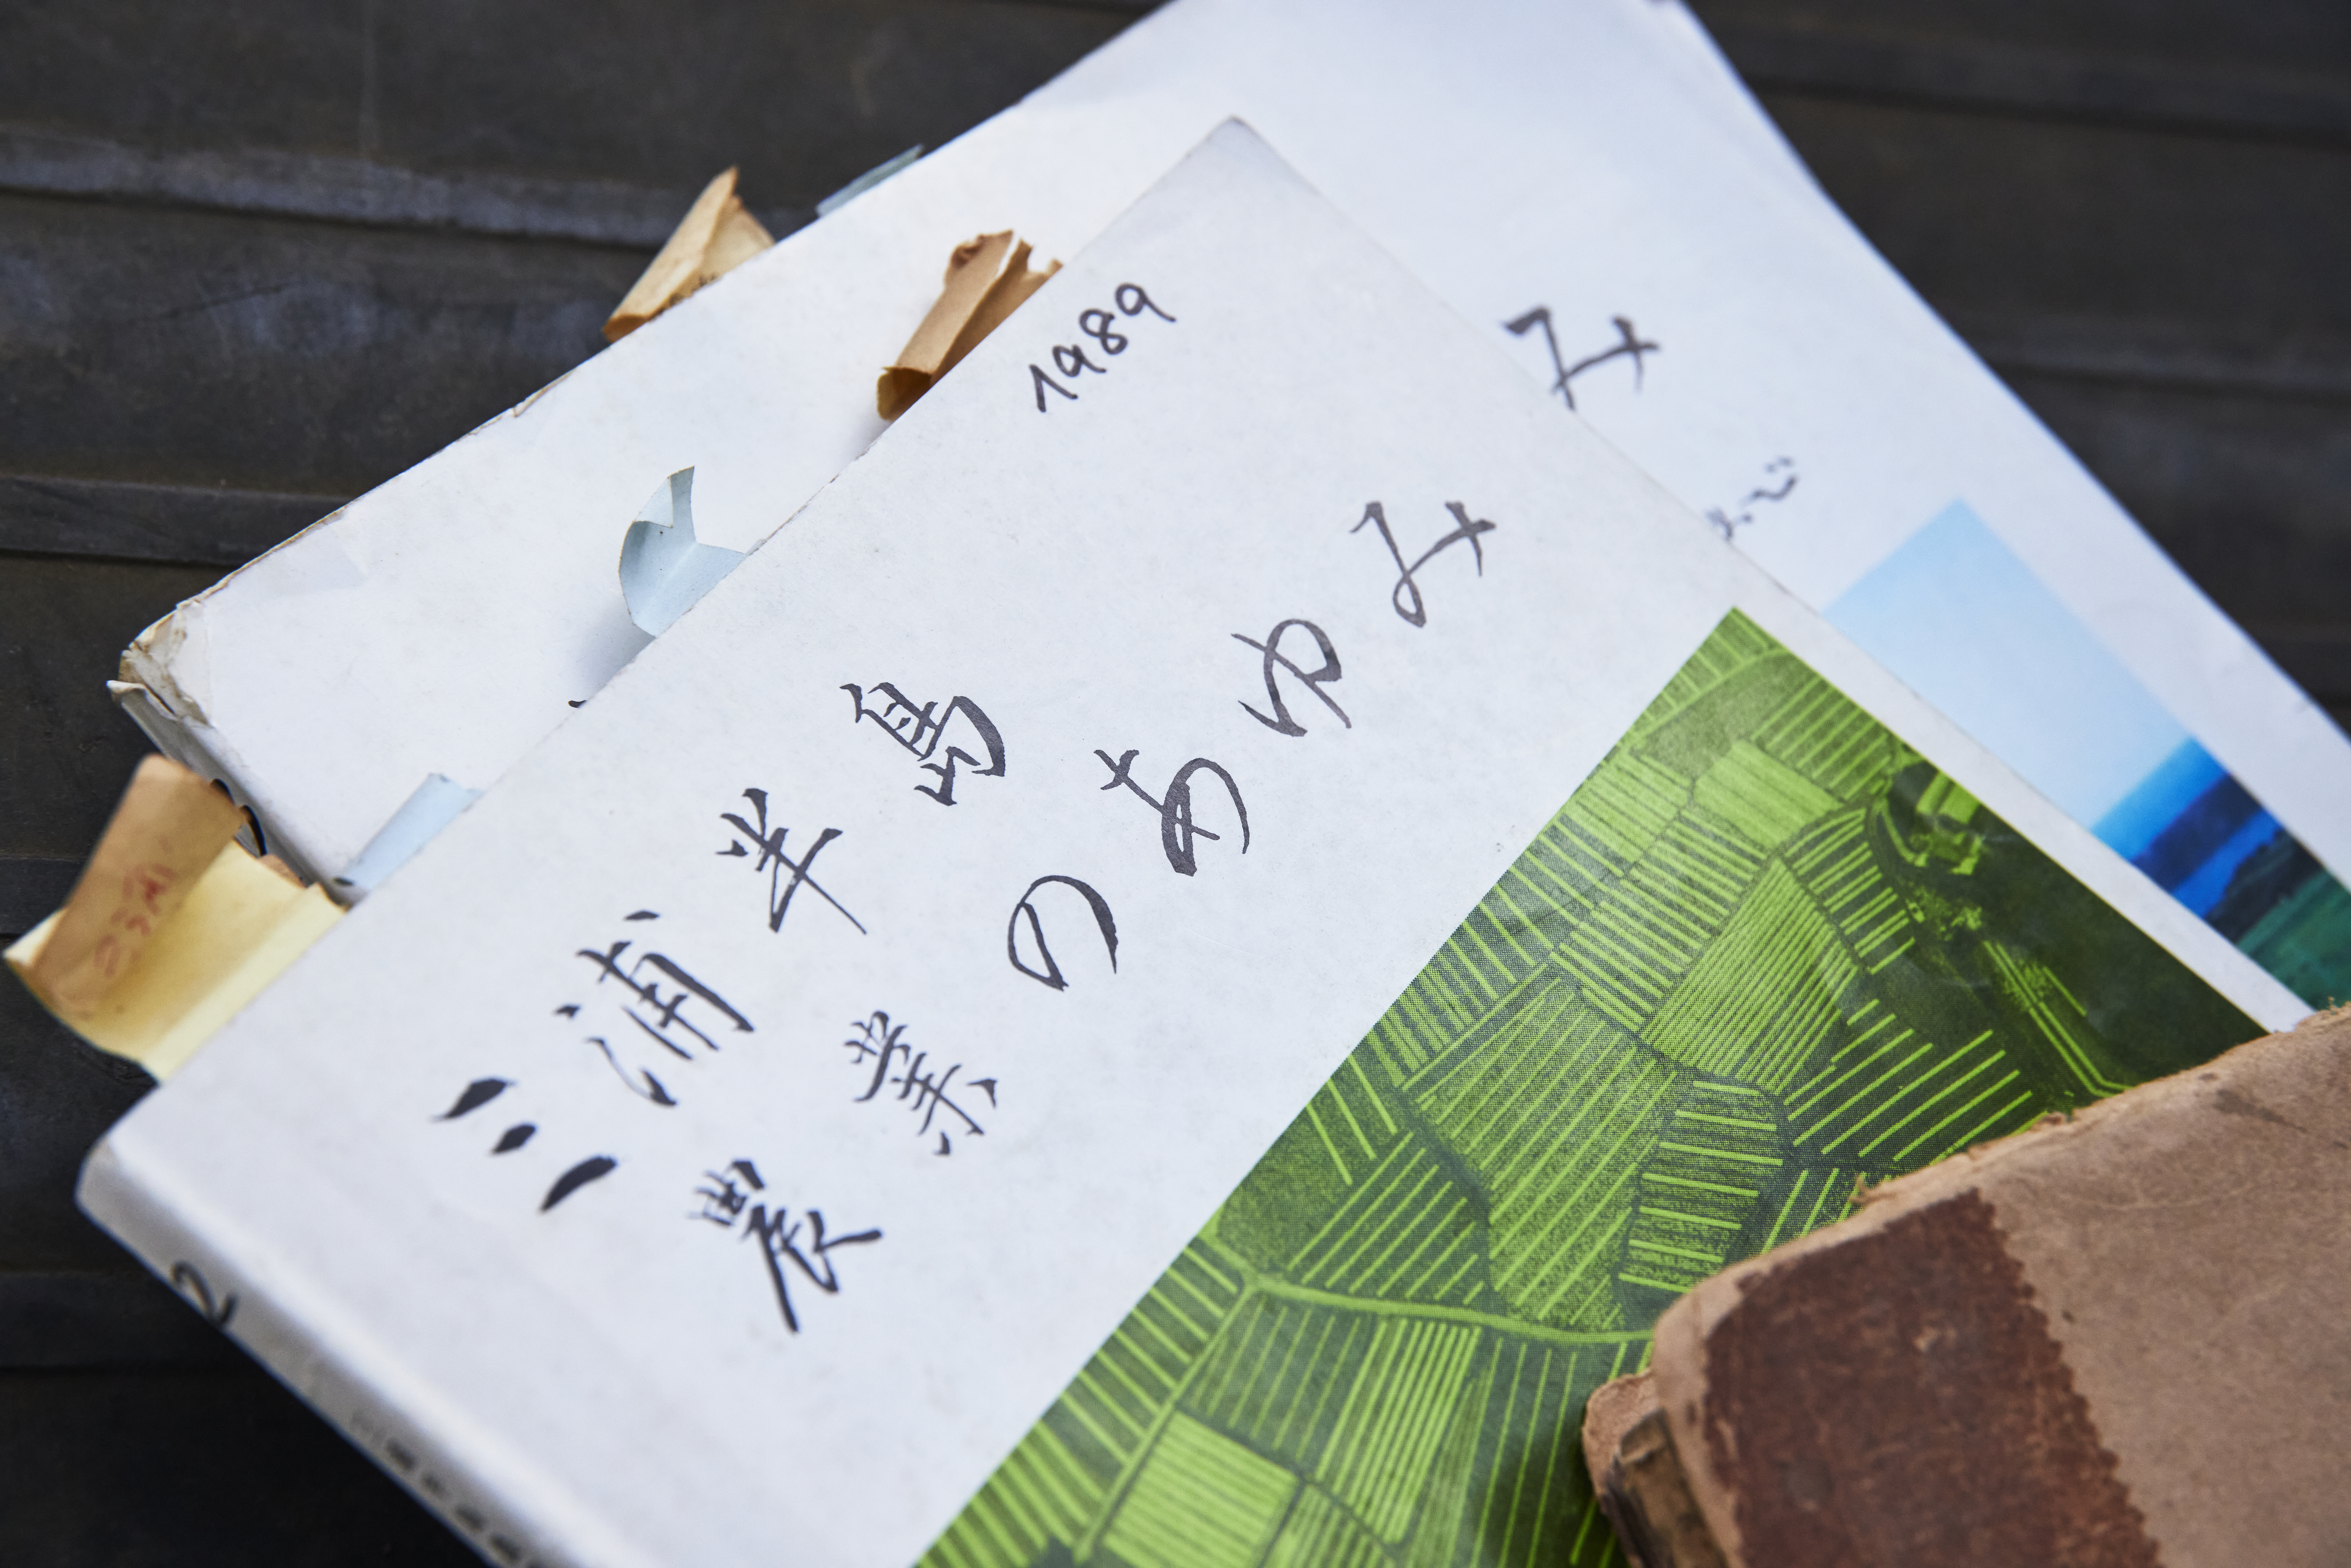 1989
三浦半島
農業のあゆみ
み
2